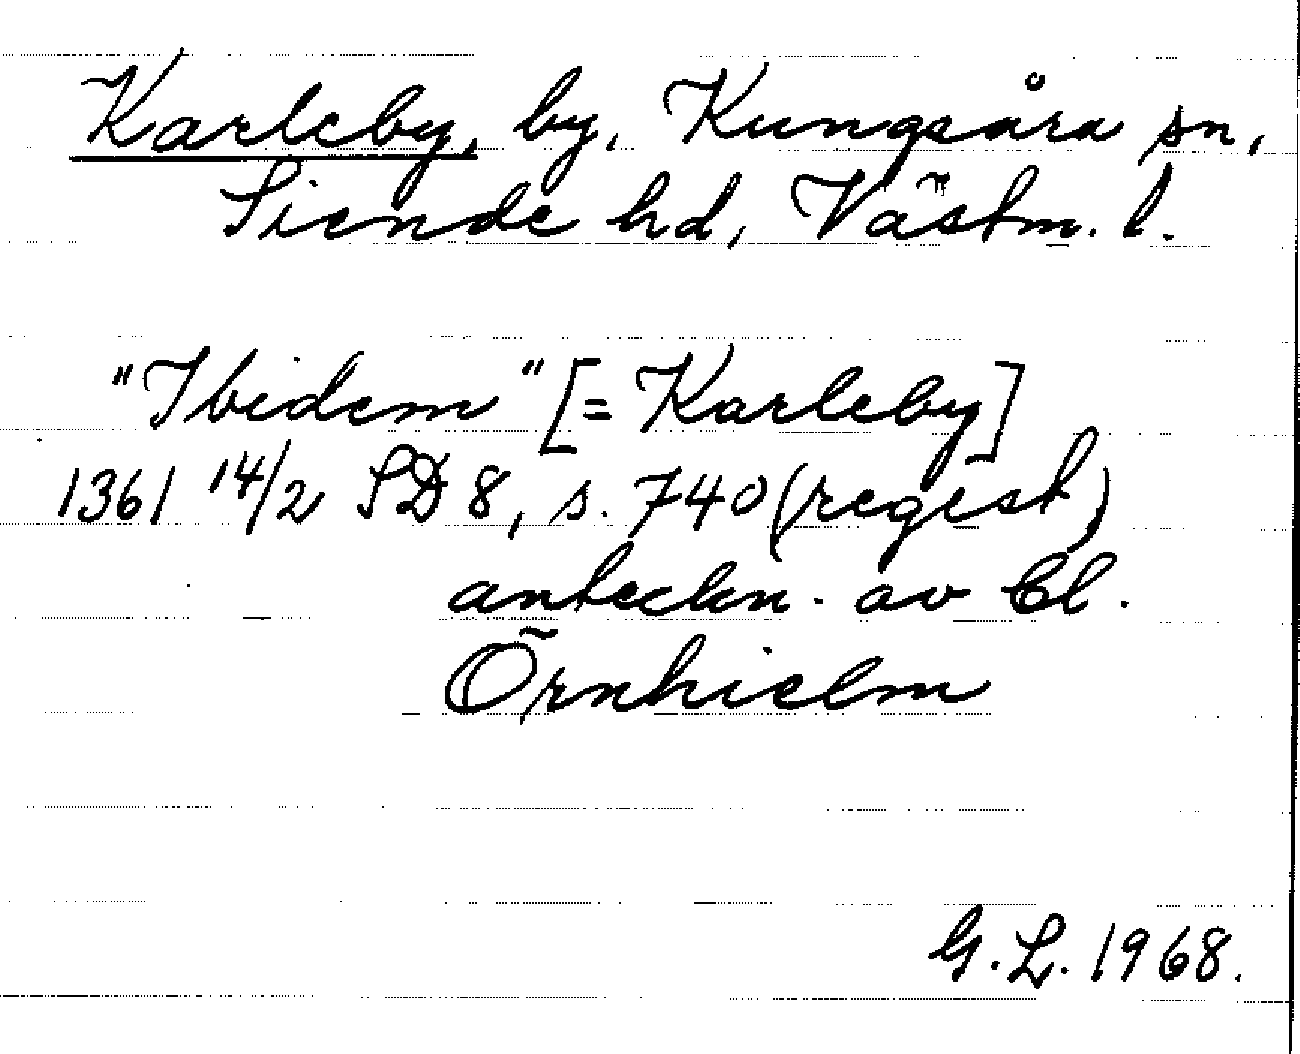 Karleby, by, Kungsåra sn,
Siende hd, Västm. l.
"Ibidem" [= Karleby]
1361 14/2 SD 8, s. 740 (regest)
anteckn. av Cl.
Örnhielm
G. L. 1968.